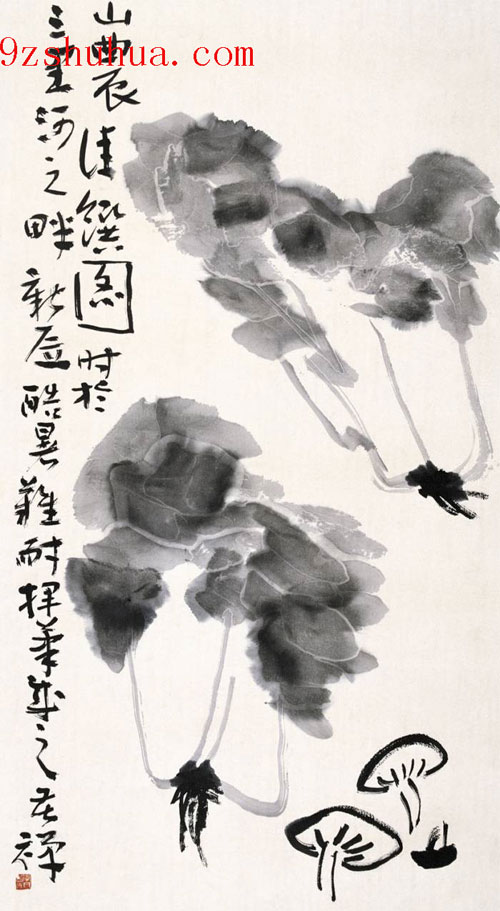 9zshuhua.com
山農佳饌圖时於
三里河之畔新酷暑難耐揮筆成之苦禅